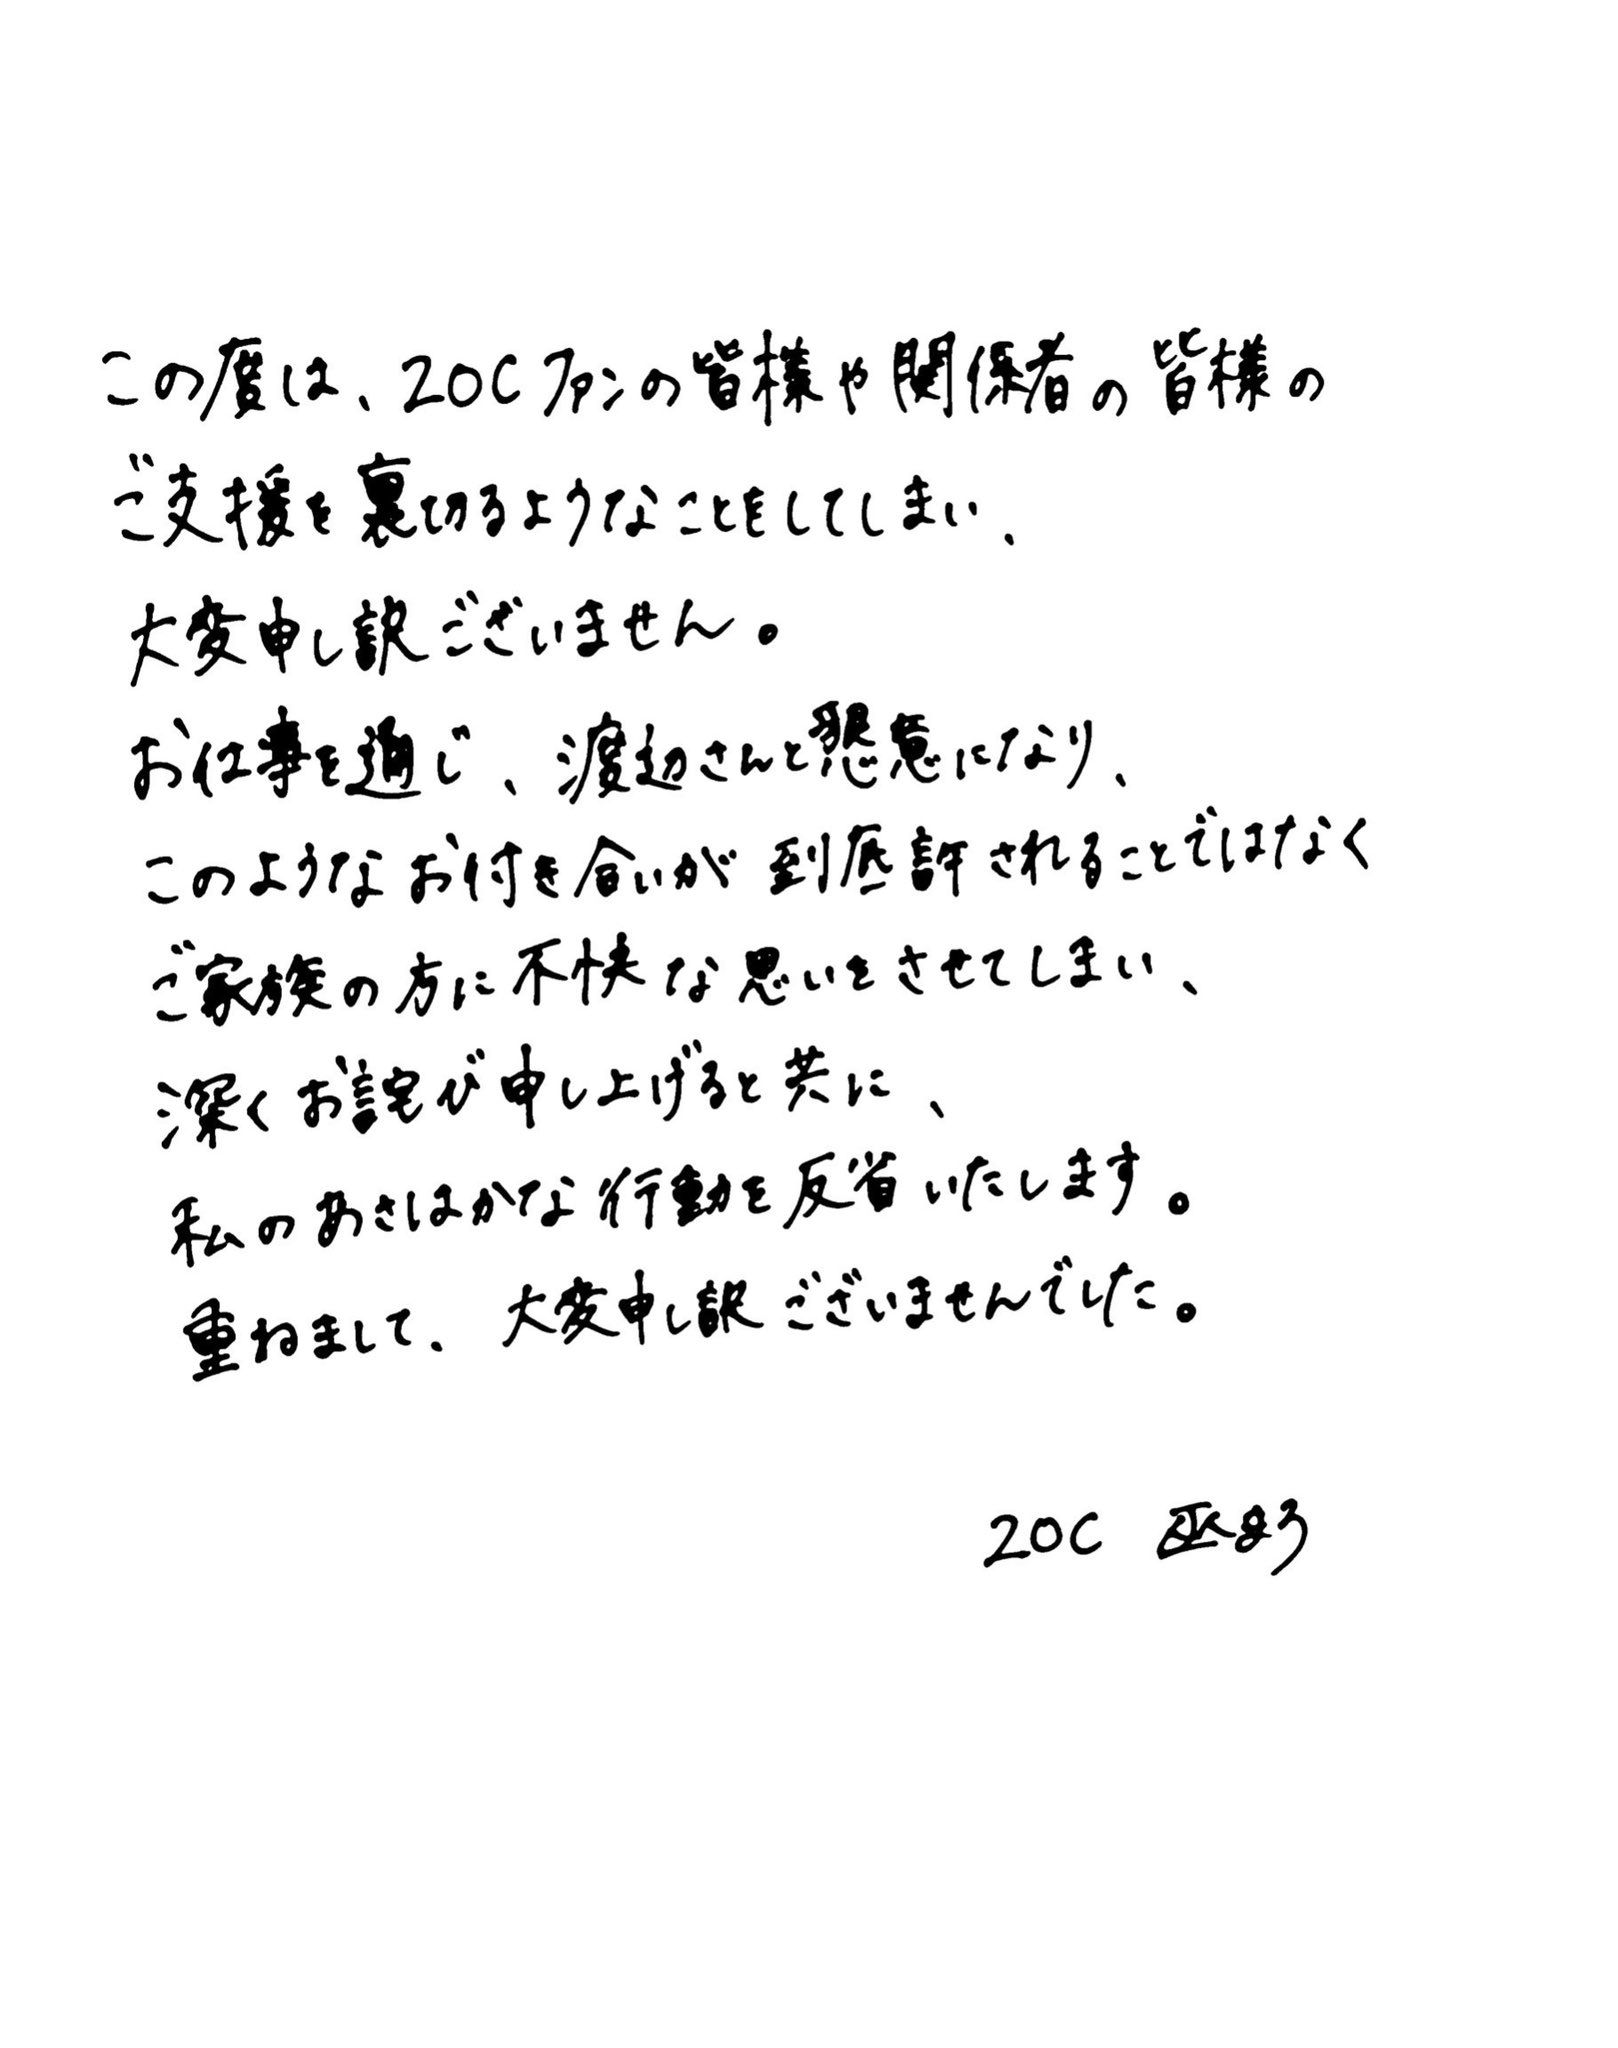 この度は、ZOCファンの皆様や関係者の皆様の
ご支援を裏切るようなことをしてしまい、
大変申し訳ございません。
お仕事を通じ、渡辺さんと懇意になり、
このようなお付き合いが到底許されることではなく
ご家族の方に不快な思いをさせてしまい、
深くお詫び申し上げると共に、
私のあさはかな行動を反省いたします。
重ねまして、大変申し訳ございませんでした。
ZOC 巫まろ